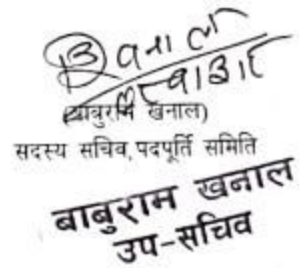 (बाबुराम खनाल)
सदस्य सचिव, पदपूर्ति समिति
बाबुराम खनाल
उप-सचिव